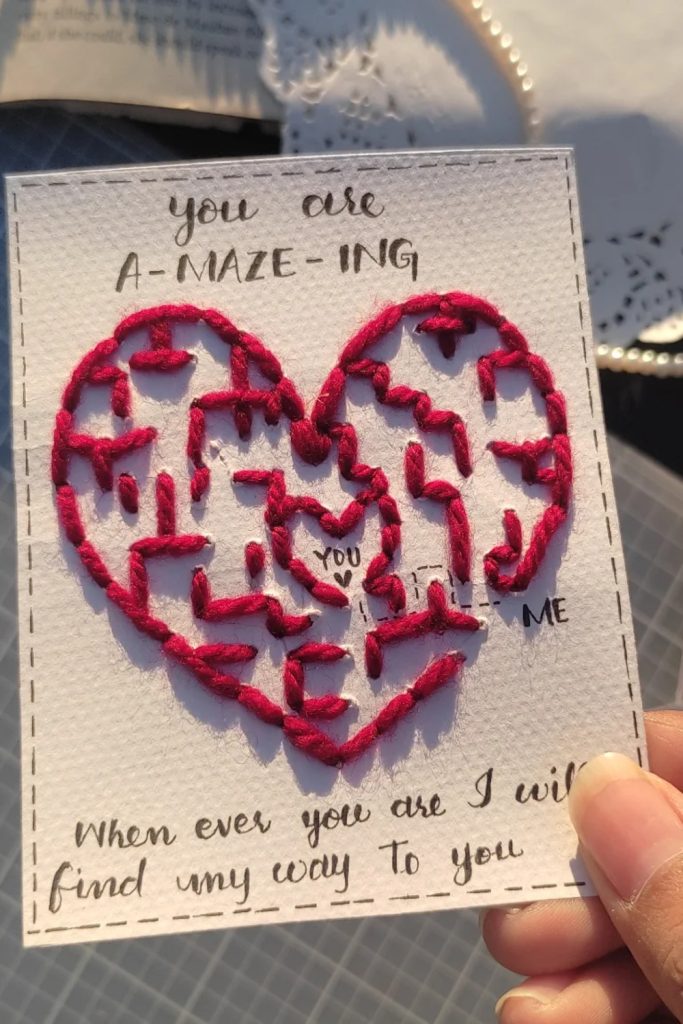 you are
A-MAZE-ING
YOU
ME
When ever you are I will
find my way to you